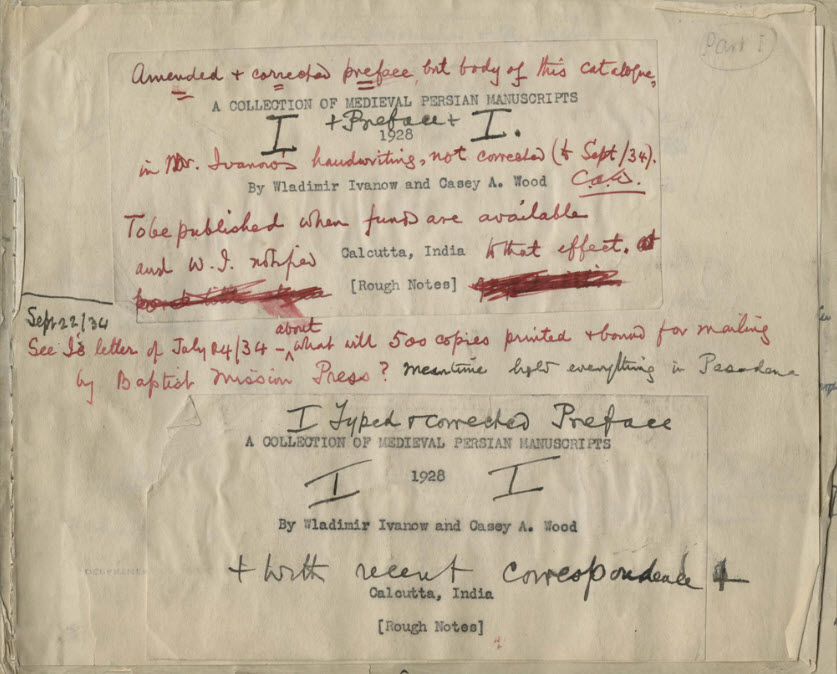 Part I
Amended + corrected preface, but body of this catalogue,
A COLLECTION OF MEDIEVAL PERSIAN MANUSCRIPTS
I + Preface + I.
1928
in Mr. Ivanow's handwriting, not corrected (to Sept/34).
By Wladimir Ivanow and Casey A. Wood C.A.W.
To be published when funds are available
and W.I. notified Calcutta, India to that effect.
[Rough Notes]
Sept 22/34
See I's letter of July 24/34 – about what will 500 copies printed + bound for mailing
by Baptist Mission Press? Meantime hold everything in Pasadena
I Typed + corrected Preface
A COLLECTION OF MEDIEVAL PERSIAN MANUSCRIPTS
1928
I I
By Wladimir Ivanow and Casey A. Wood
+ with recent correspondence +
Calcutta, India
[Rough Notes]